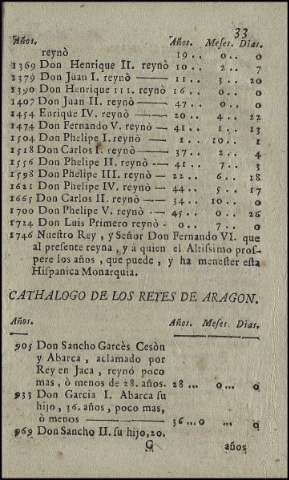 33
Años. Años. Meses. Dias.
reynò 19 .. 0 .. 0
1369 Don Henrique II. reynò 10 .. 2 .. 7
1379 Don Juan I. reynò —— 11 .. 3 .. 20
1390 Don Henrique III. reynò 16 .. 0 .. 0
1407 Don Juan II. reynò —— 47 .. 0 .. 0
1454 Enrique IV. reynò —— 20 .. 4 .. 22
1474 Don Fernando V. reynò — 41 .. 1 .. 13
1504 Don Phelipe I. reynò — 1 .. 10 .. 1
1518 Don Carlos I. reynò —— 37 .. 2 .. 4
1556 Don Phelipe II. reynò —— 41 .. 7 .. 3
1598 Don Phelipe III. reynò — 22 .. 6 .. 18
1621 Don Phelipe IV. reynò — 44 .. 5 .. 17
1665 Don Carlos II. reynò —— 34 .. 10 .. 0
1700 Don Phelipe V. reynò — 45 .. 0 .. 26
1724 Don Luis Primero reynò - 0 .. 7 .. 0
1746 Nuestro Rey, y Señor Don Fernando VI. que
al presente reyna, y à quien el Altissimo pros-
pere los años, que puede, y ha menester esta
Hispanica Monarquia.
CATHALOGO DE LOS REYES DE ARAGON.
Años. Años. Meses. Dias.
905 Don Sancho Garcès Cesòn
y Abarca, aclamado por
Rey en Jaca, reynó poco
mas, ò menos de 28. años. 28 ... 0 ... 0
933 Don Garcia I. Abarca su
hijo, 36. años, poco mas,
ò menos —— 36 ... 0 ... 0
969 Don Sancho II. su hijo, 20.
G años